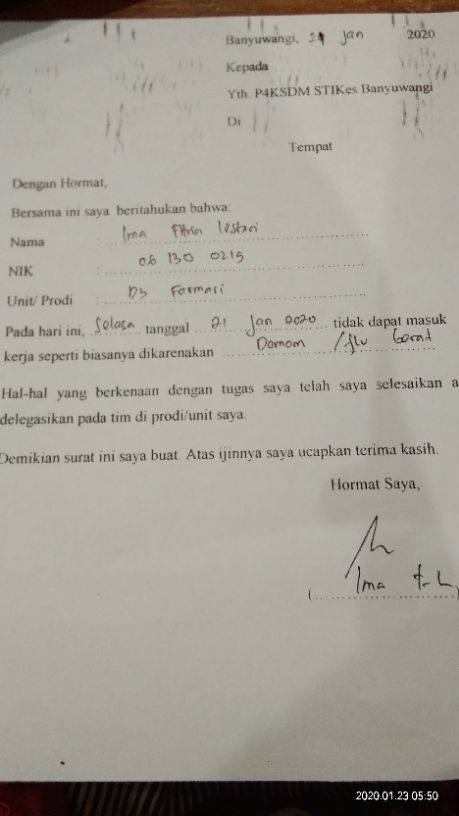 Banyuwangi, 21 Jan 2020
Kepada
Yth. P4KSDM STIKes Banyuwangi
Di
Tempat
Dengan Hormat,
Bersama ini saya beritahukan bahwa:
Nama : Ima Fitria Lestari
NIK : 06 130 0219
Unit/ Prodi : D3 Farmasi
Pada hari ini, Selasa tanggal 21 Jan 2020 tidak dapat masuk
kerja seperti biasanya dikarenakan Demam / flu berat
Hal-hal yang berkenaan dengan tugas saya telah saya selesaikan a
delegasikan pada tim di prodi/unit saya.
Demikian surat ini saya buat. Atas ijinnya saya ucapkan terima kasih.
Hormat Saya,
(Ima F-L)
2020.01.23 05:50